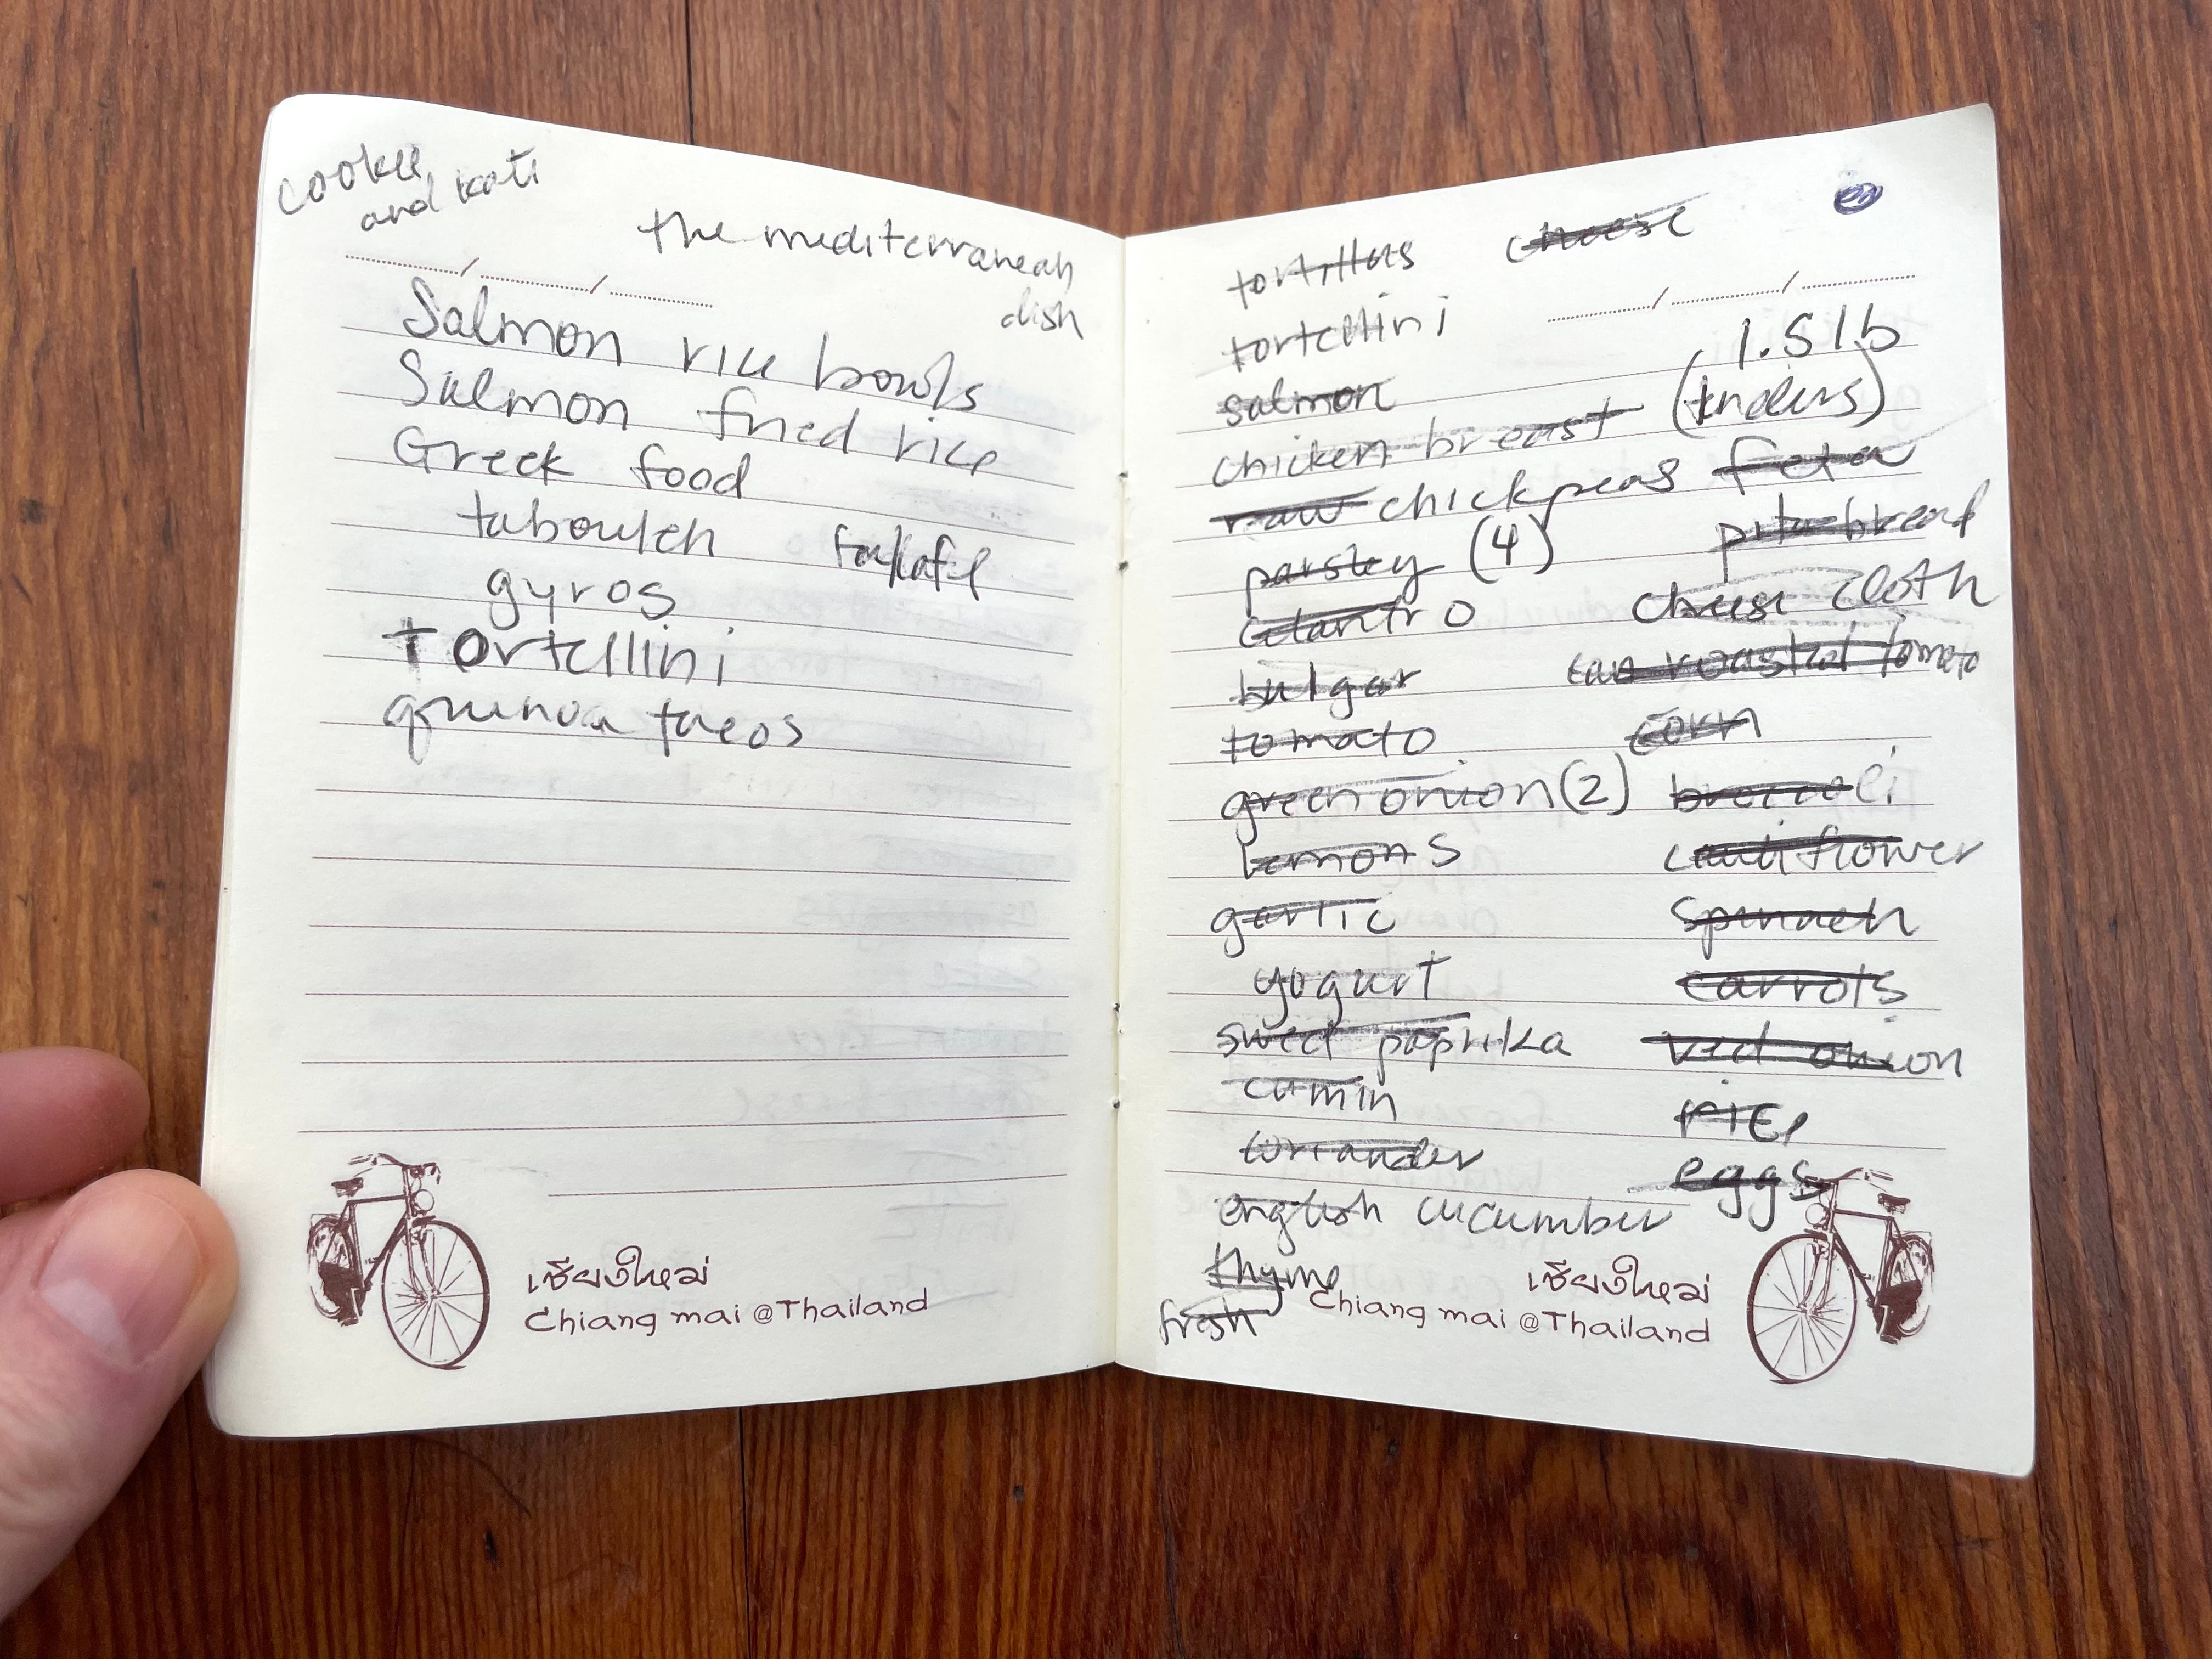 cookie
and kati
the mediterranean
dish
Salmon rice bowls
Salmon fried rice
Greek food
tabouleh falafel
gyros
Tortellini
quinoa tacos
เชียงใหม่
Chiang mai @Thailand
tortillas cheese
tortellini
1.5 lb
salmon
chicken breast (tenders)
raw chickpeas feta
parsley (4) pita bread
cilantro cheese cloth
bulgar can roasted tomato
tomato corn
green onion (2) broccoli
lemons cauliflower
garlic spinach
yogurt carrots
sweet paprika red onion
cumin rice
coriander eggs
english cucumber
thyme
fresh
เชียงใหม่
Chiang mai @Thailand